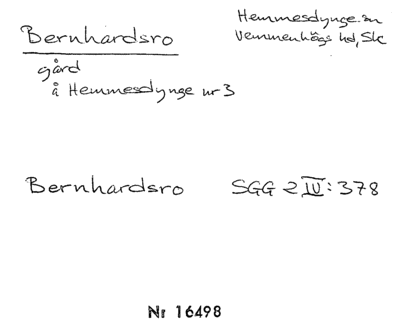 Bernhardsro
Hemmesdynge sn
Vemmenhögs hd, Sk
gård
å Hemmesdynge nr 3
Bernhardsro SGG 2 IV: 378
Nr 16498